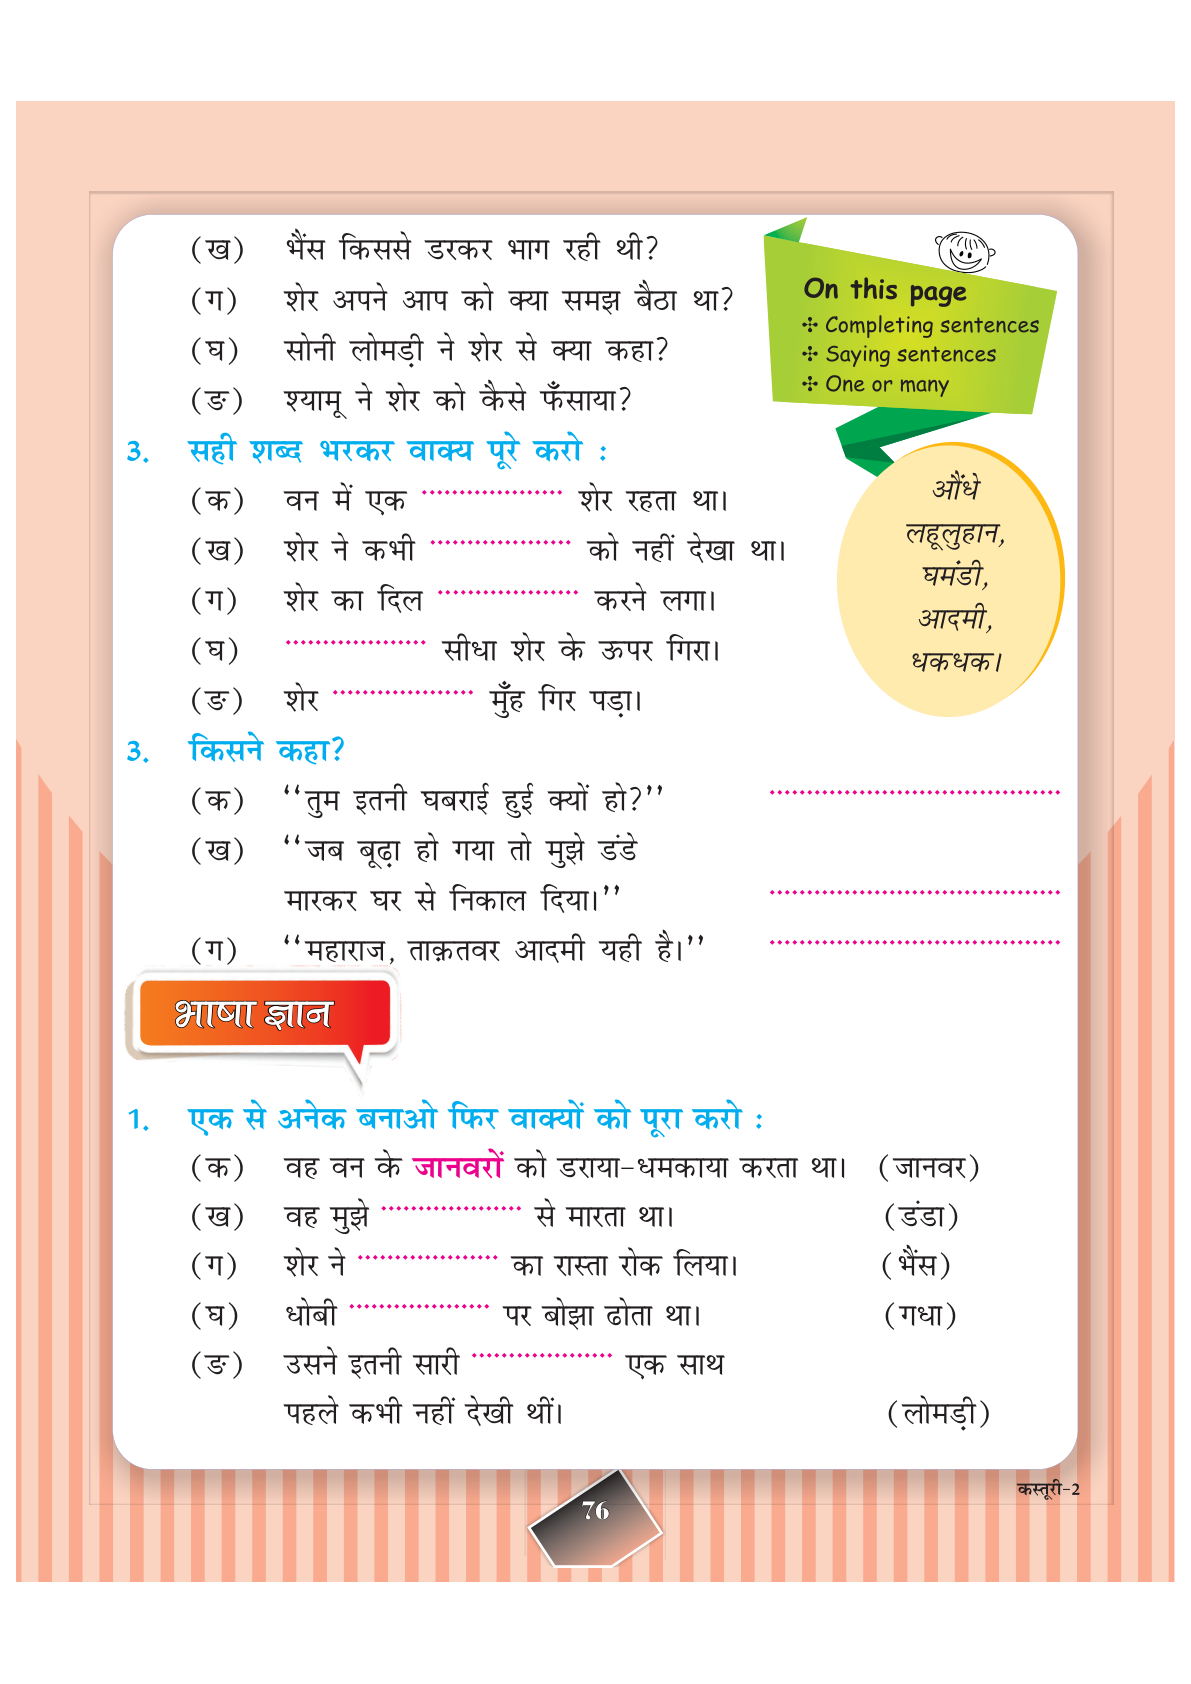 (ख) भैंस किससे डरकर भाग रही थी?
(ग) शेर अपने आप को क्या समझ बैठा था?
(घ) सोनी लोमड़ी ने शेर से क्या कहा?
(ङ) श्यामू ने शेर को कैसे फँसाया?
On this page
✣ Completing sentences
✣ Saying sentences
✣ One or many
3. सही शब्द भरकर वाक्य पूरे करो :
(क) वन में एक ................... शेर रहता था।
(ख) शेर ने कभी ................... को नहीं देखा था।
(ग) शेर का दिल ................... करने लगा।
(घ) ................... सीधा शेर के ऊपर गिरा।
(ङ) शेर ................... मुँह गिर पड़ा।
औंधे
लहूलुहान,
घमंडी,
आदमी,
धकधक।
3. किसने कहा?
(क) ‘‘तुम इतनी घबराई हुई क्यों हो?’’ .......................................
(ख) ‘‘जब बूढ़ा हो गया तो मुझे डंडे
मारकर घर से निकाल दिया।’’ .......................................
(ग) ‘‘महाराज, ताक़तवर आदमी यही है।’’ .......................................
भाषा ज्ञान
1. एक से अनेक बनाओ फिर वाक्यों को पूरा करो :
(क) वह वन के जानवरों को डराया-धमकाया करता था। (जानवर)
(ख) वह मुझे ................... से मारता था। (डंडा)
(ग) शेर ने ................... का रास्ता रोक लिया। (भैंस)
(घ) धोबी ................... पर बोझा ढोता था। (गधा)
(ङ) उसने इतनी सारी ................... एक साथ
पहले कभी नहीं देखी थीं। (लोमड़ी)
76
कस्तूरी-2